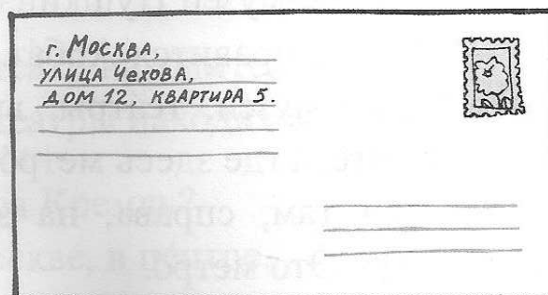 г. Москва,
улица Чехова,
дом 12, квартира 5.